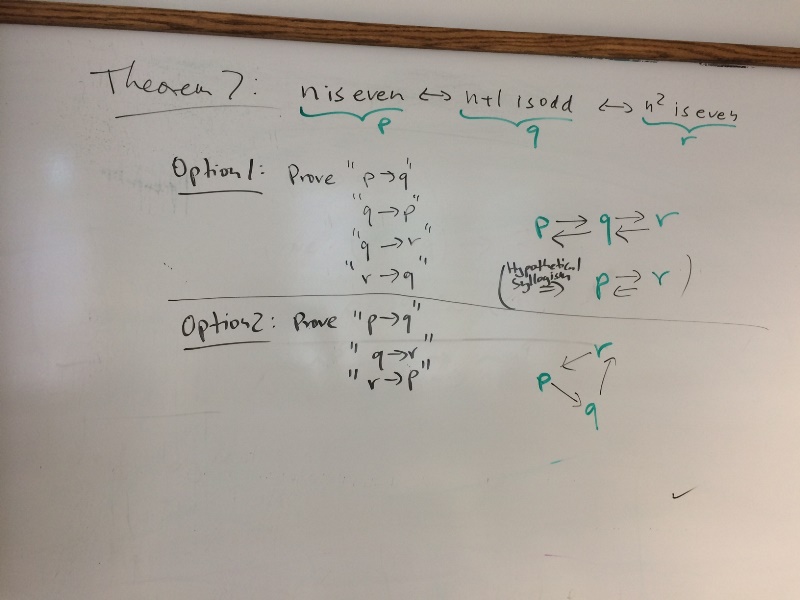 Theorem 7: n is even ↔ n+1 is odd ↔ n² is even
p q r
Option 1: Prove "p→q"
"q→p"
"q→r"
"r→q"
p ⇄ q ⇄ r
(Hypothetical
Syllogism
⇒ p ⇄ r)
Option 2: Prove "p→q"
"q→r"
"r→p"
r
p
q